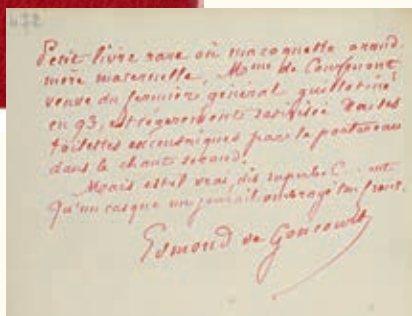 472
Petit livre rare où ma coquette grand
mère maternelle, Mme de Courmont
veuve du fermier général guillotiné
en 93, est légèrement satirisée dans ses
toilettes excentriques par le
dans le chant second.
Mais est-il vrai, dis superbe C...mont
Qu'un casque un jour ait ombragé ton front.
Edmond de Goncourt